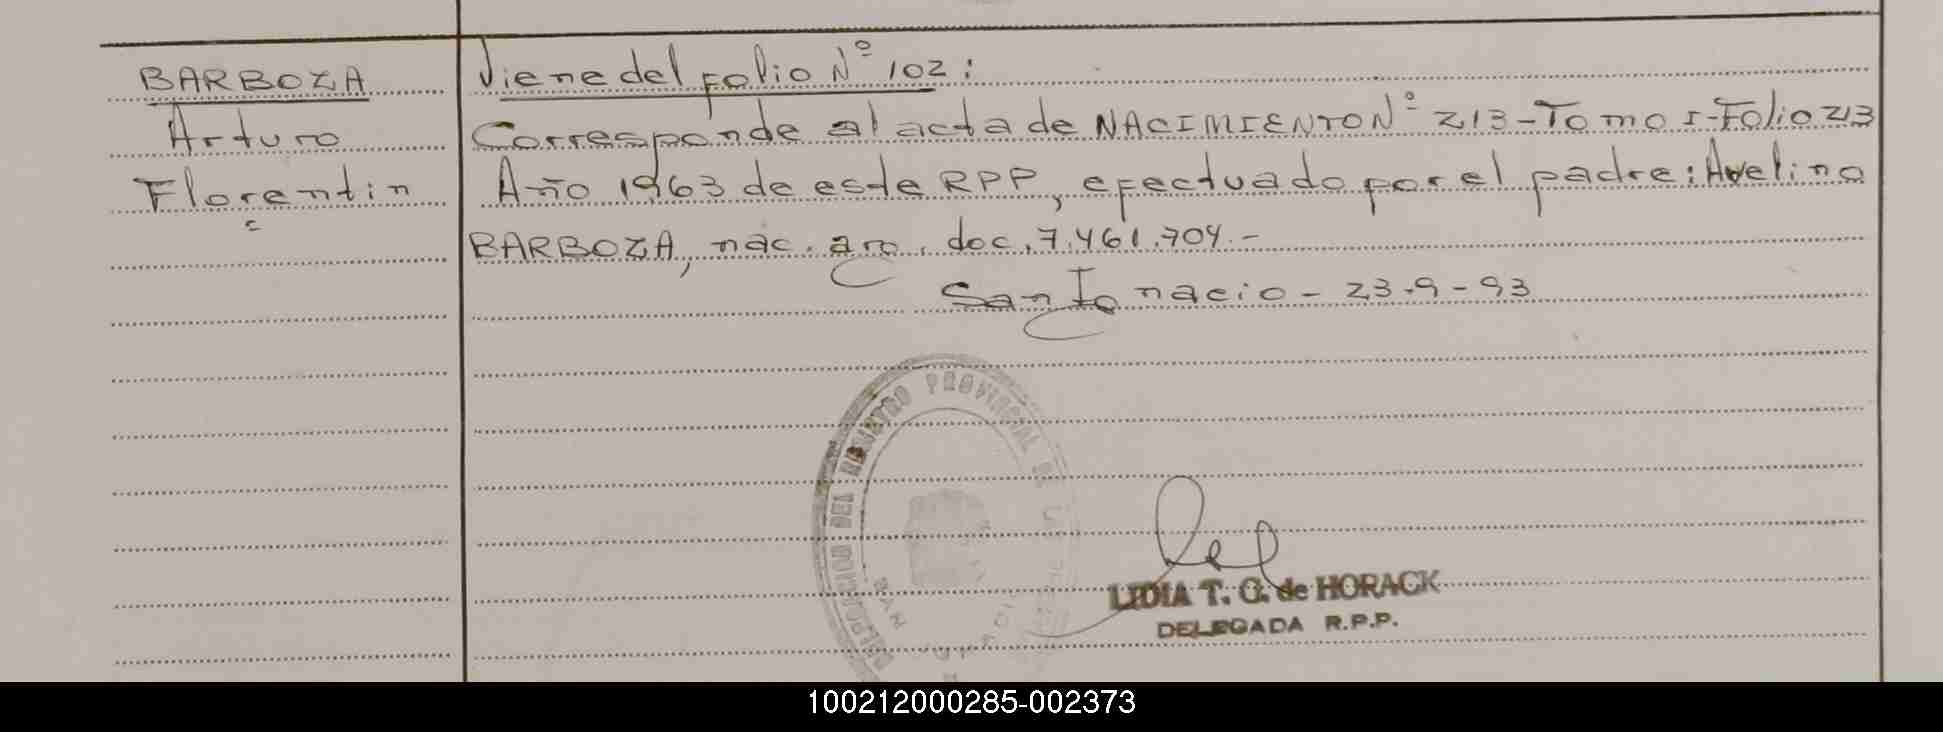 BARBOZA
Arturo
Florentin
Viene del folio Nº 102:
Corresponde al acta de NACIMIENTO Nº 213-Tomo I-Folio 213
Año 1963 de este RPP, efectuado por el padre: Avelino
BARBOZA, nac. arg. doc. 7.461.704.-
San Ignacio - 23-9-93
DEL REGISTRO PROVINCIAL DE
LIDIA T. G. de HORACK
DELEGADA R.P.P.
100212000285-002373